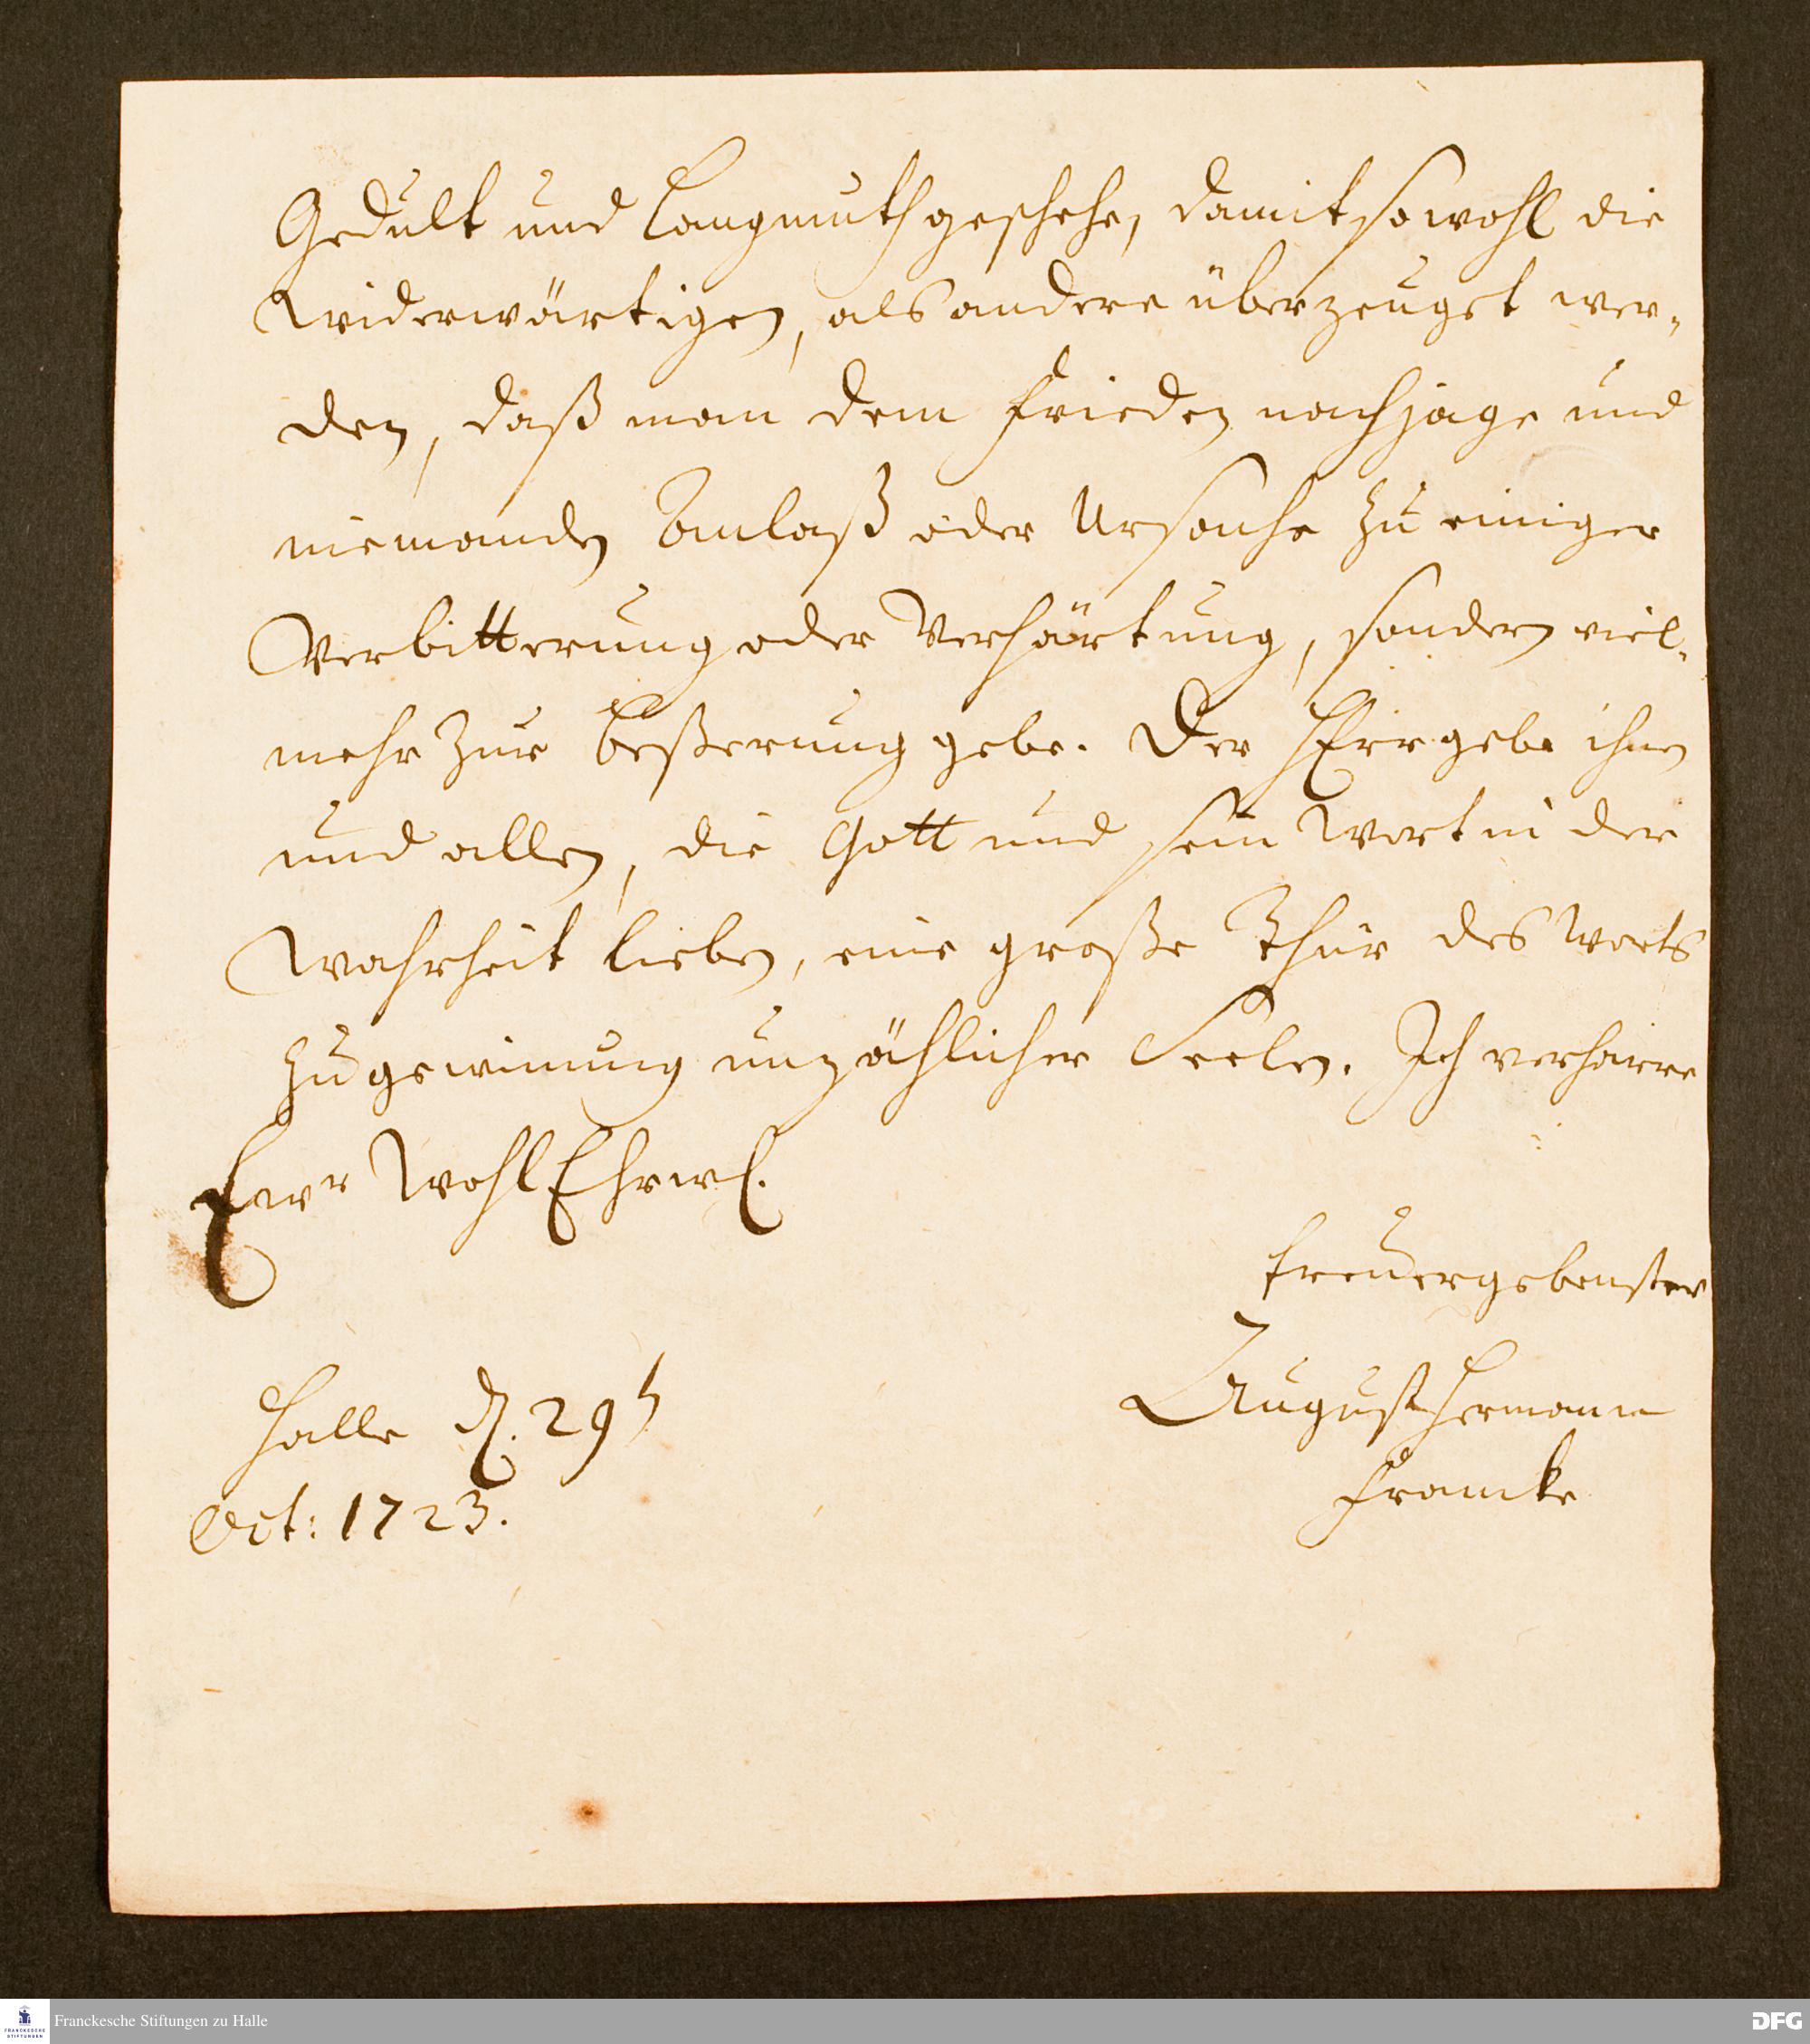 Gedult und Langmuth geschehe, damit sowohl die
Widerwärtigen, als andere überzeuget wer-
den, daß man dem Frieden nachjage und
niemanden Anlaß oder Ursache zu einiger
Verbitterung oder Verhärtung, sondern viel-
mehr zur Beßerung gebe. Der HErr gebe ihnen
und allen, die Gott und sein Wort in der
Wahrheit lieben, eine große Thür des Worts
zu gewinnung unzählicher Seelen. Ich verharre
Ewr WohlEhrw.
treuergebenster
Halle d. 29
August Hermann
Francke
Oct: 1723.
Franckesche Stiftungen zu Halle
FRANCKESCHE
STIFTUNGEN
DFG